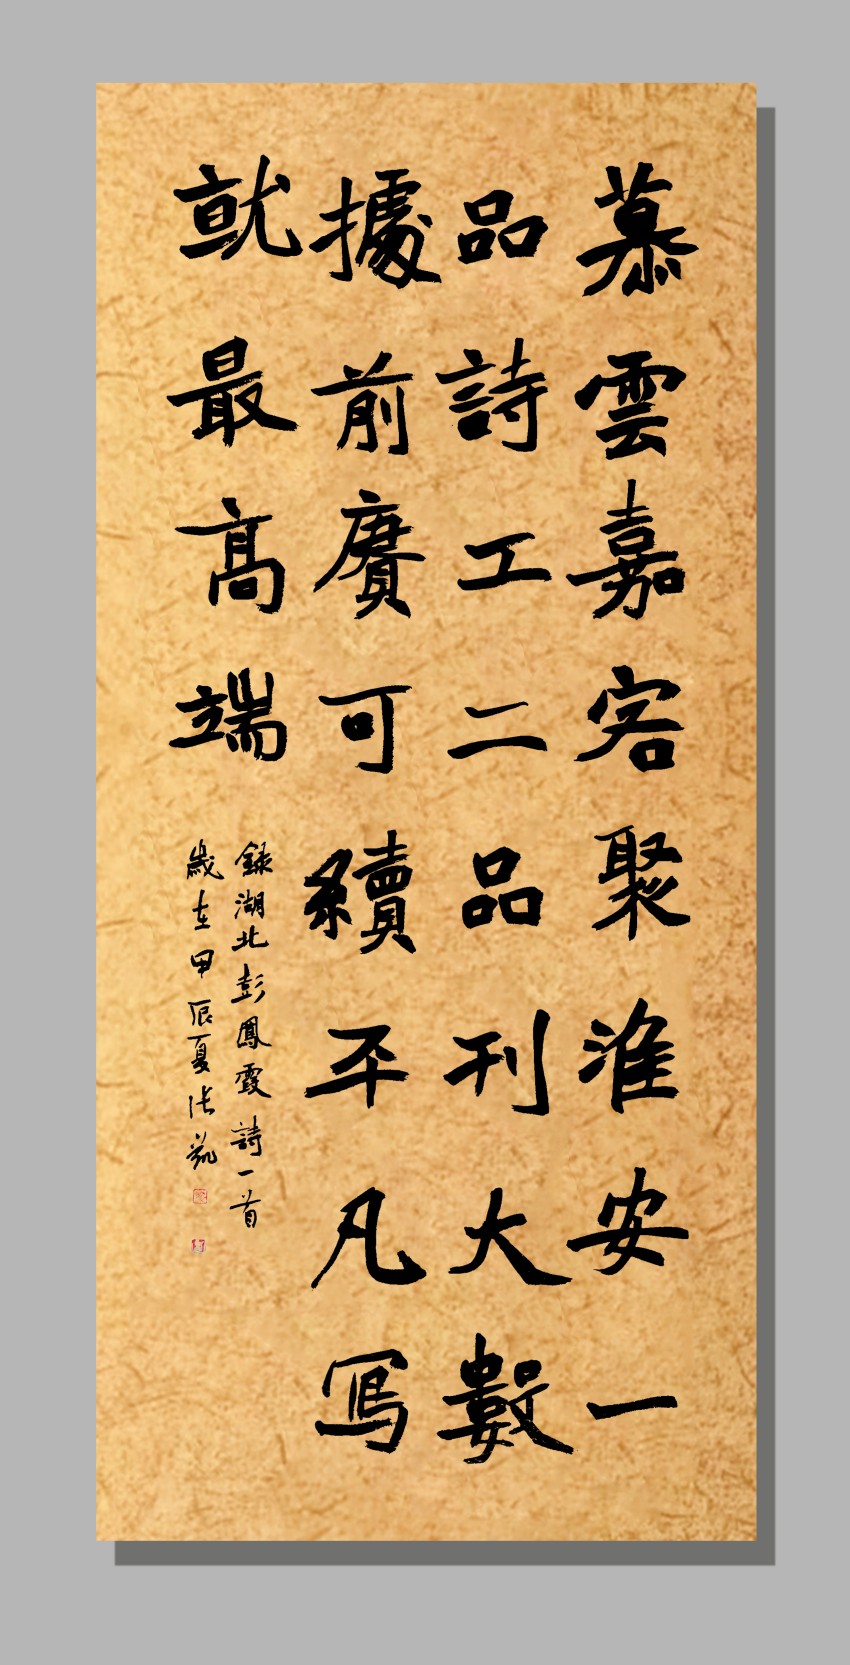 慕雲嘉客聚淮安一
品詩工二品刊大數
據前賡可續平凡寫
就最高端
錄湖北彭鳳霞詩一首
歲在甲辰夏張